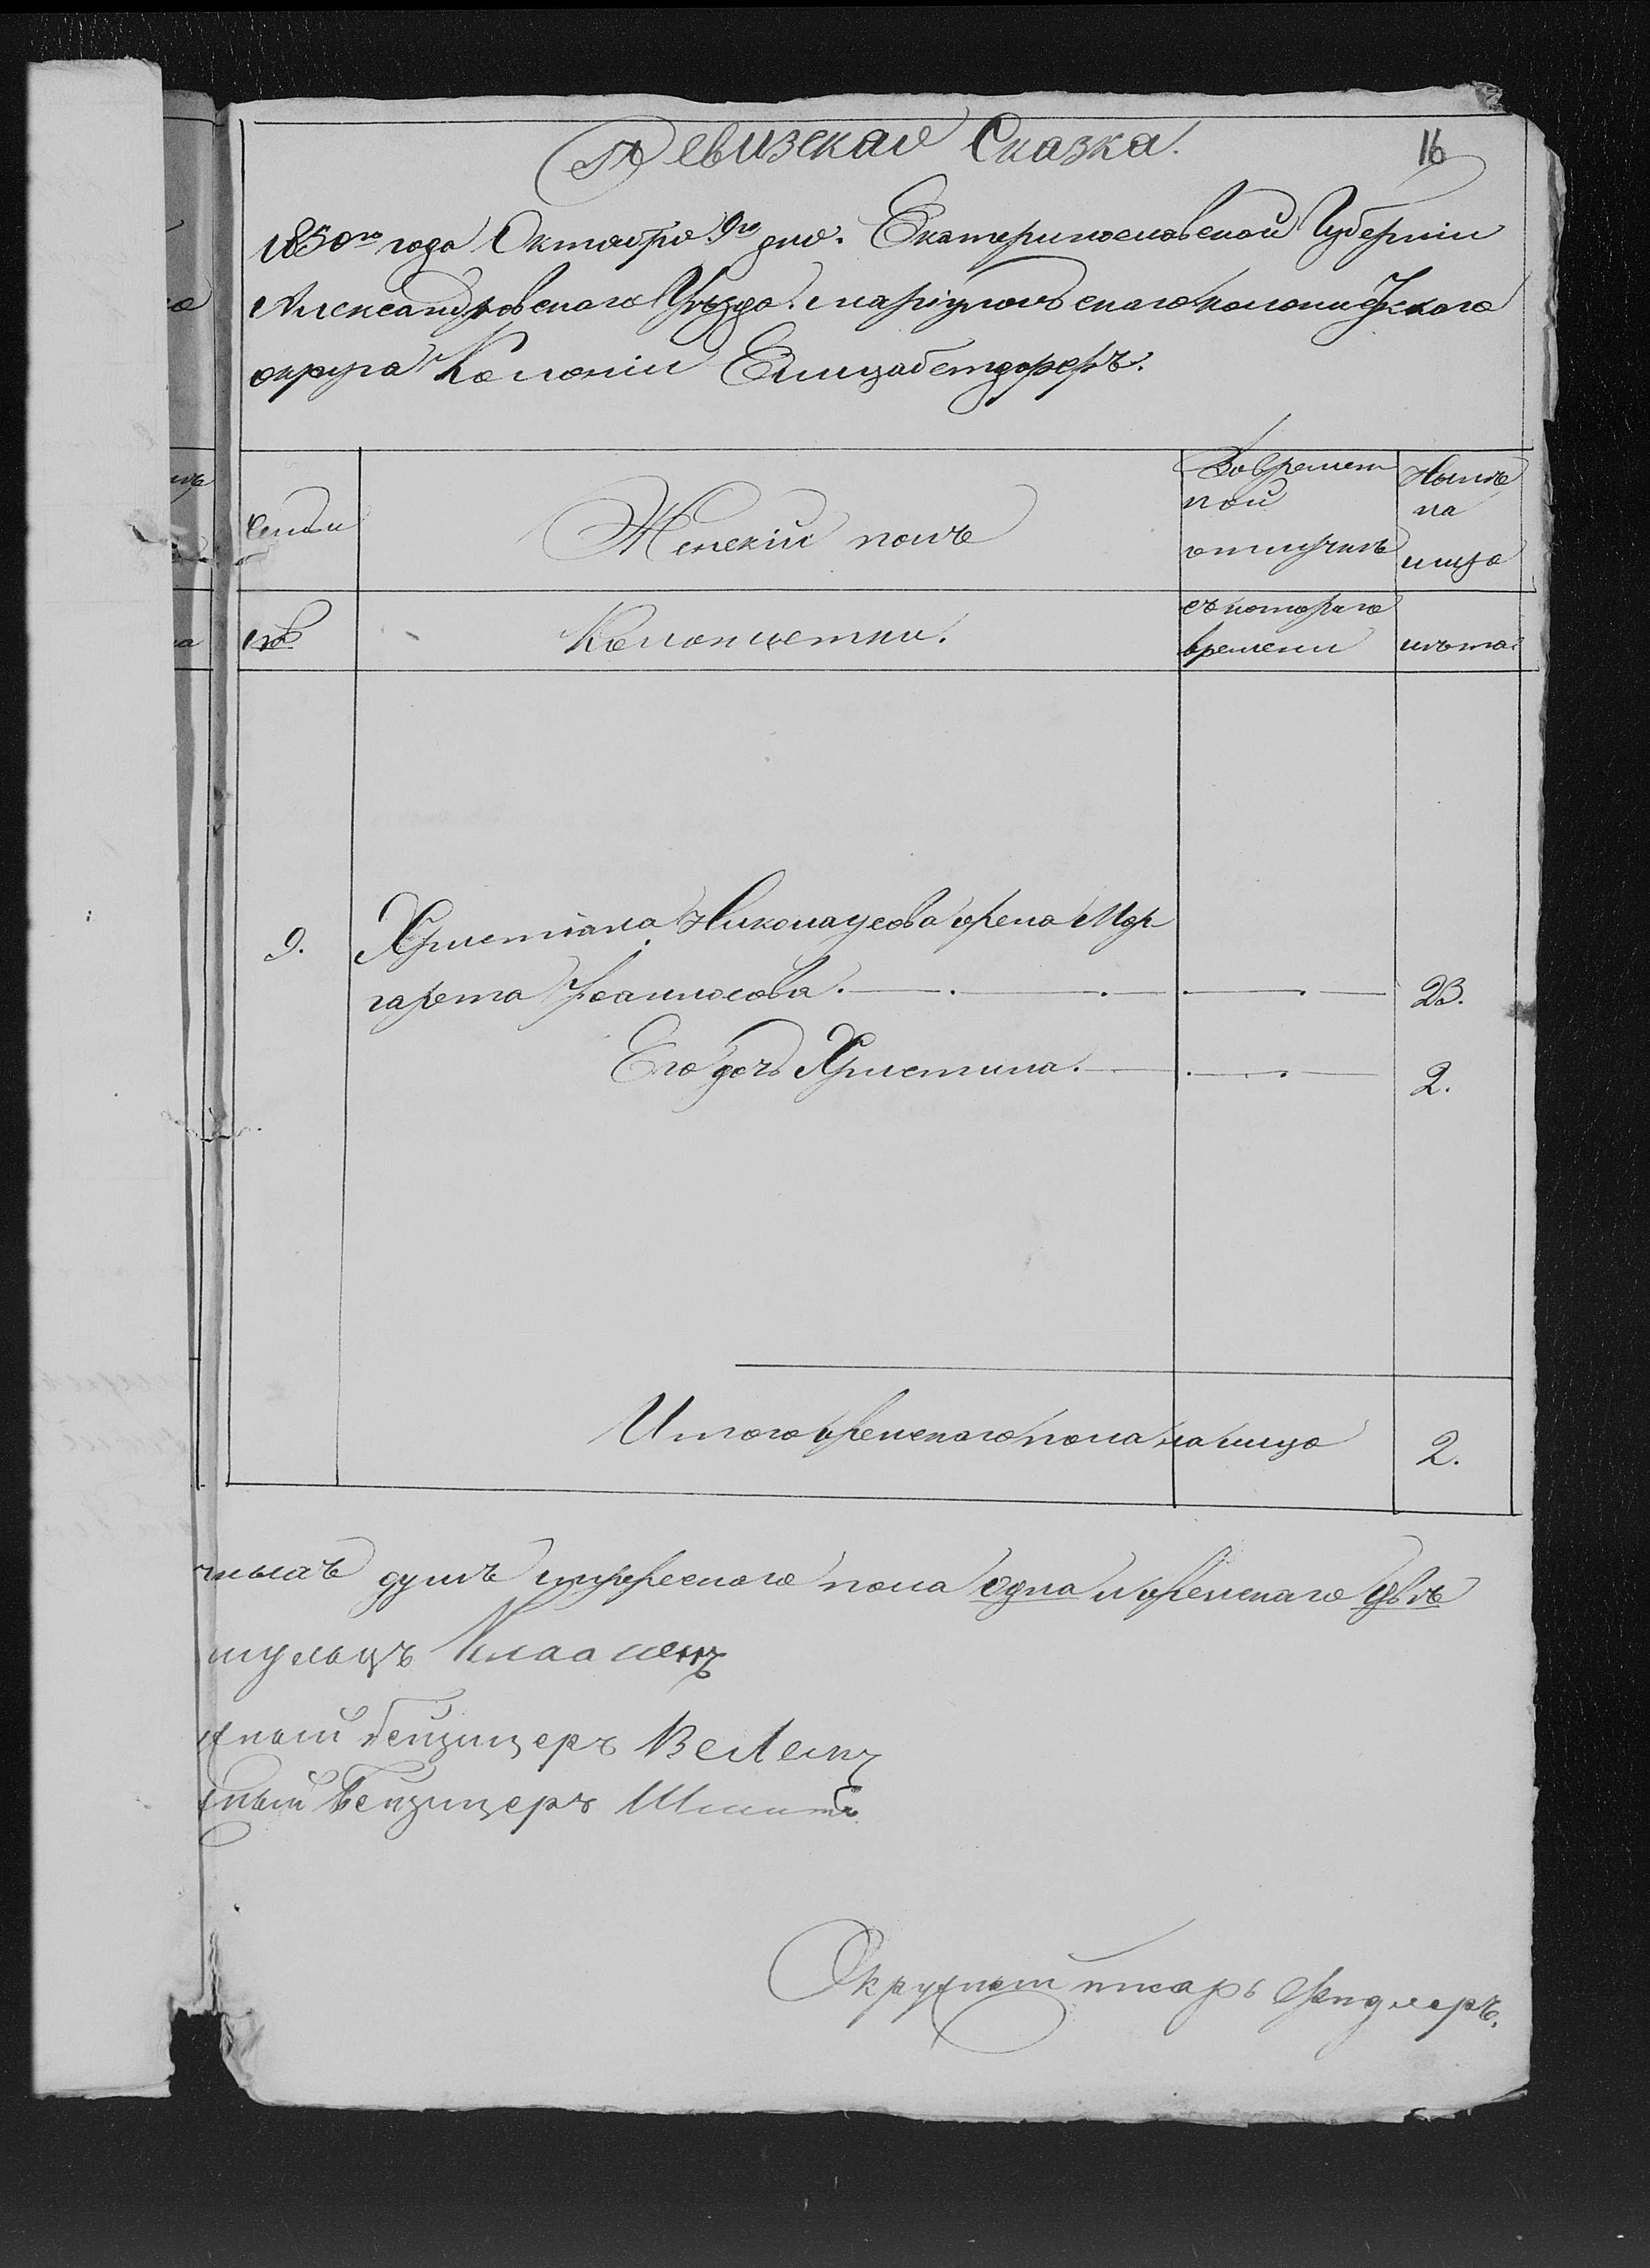 Ревизская Сказка.
16
1850го года Октября 9го дня. Екатеринославской Губерніи
Александровскаго Уѣзда. Маріупольскаго колонистскаго
округа Колоніи Елизабетдорфъ.
Семьи
Женскій полъ
Во времен
ной
отлучкѣ
Нынѣ
на
лицо
Колонистки.
съ котораго
времени
лѣта.
9.
Христіана Николаусова жена Мар
гарета Іоаннесова.
23.
Его дочь Христина.
2.
Итого женскаго пола на лицо
2.
душъ мужескаго пола одна и женскаго двѣ
шульцъ Клаасенъ
бейзицеръ
бейзицеръ Шмитъ
Окружный писарь Фидлеръ.